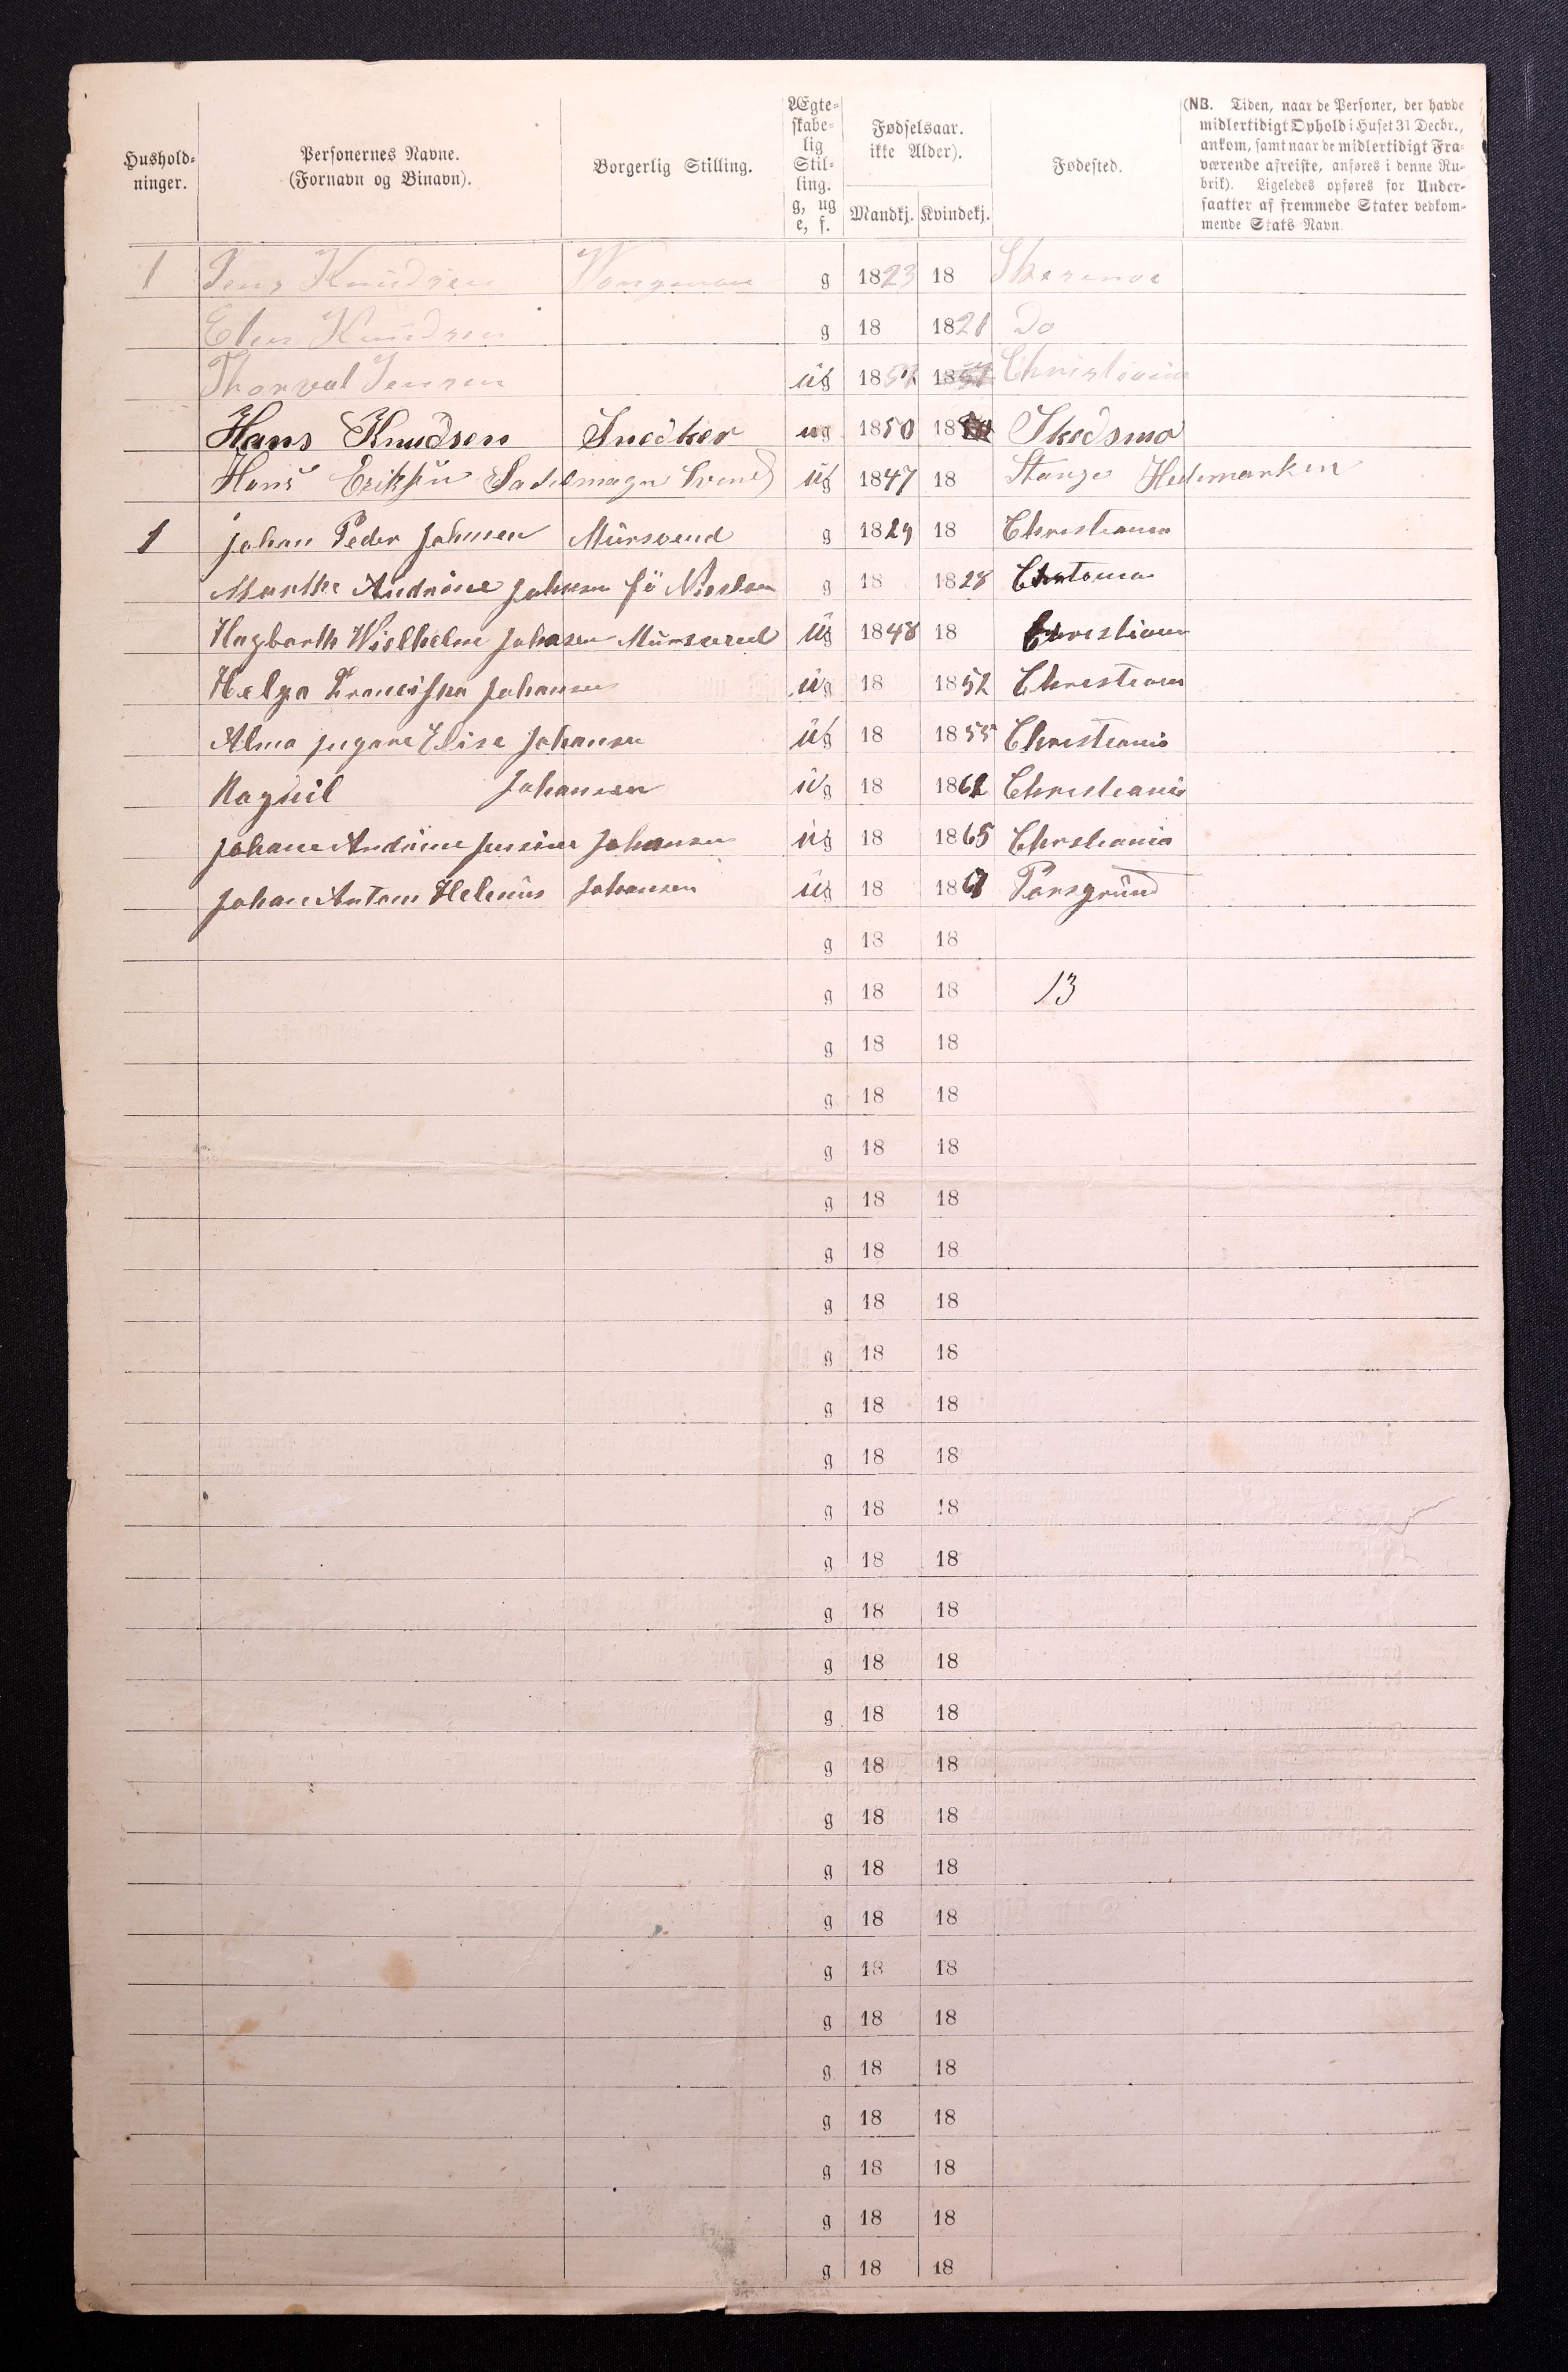 Hushold-
ninger.
Personernes Navne.
(Fornavn og Binavn).
Borgerlig Stilling.
Ægte-
skabe-
lig
Stil-
ling.
g, ug
e, f.
Fødselsaar.
ikke Alder).
Mandkj. Kvindekj.
Fødested.
(NB. Tiden, naar de Personer, der havde
midlertidigt Ophold i Huset 31 Decbr.,
ankom, samt naar de midlertidigt Fra-
værende afreiste, anføres i denne Ru-
brik). Ligeledes opføres for Under-
saatter af fremmede Stater vedkom-
mende Stats Navn.
1 Jens Knudsen Vongman g 1823 18
Knudsen g 18 1821 Do
Thorval Jensen ug 18 18 Christiania
Hans Knudsen Snedker ug 1850 18 Skedsmo
Hans Eriksen Sadelmager Svend ug 1847 18 Stange Hedemarken
1 Johan Peder Johnsen Mursvend g 1829 18 Christiania
Marthe Andrine Johnsen fö g 18 1828
Hagbarth Wielhelm Johnsen Mursvend ug 1848 18 Christiania
Helga Franciska Johansen ug 18 1852 Christiania
Alma Ingane Elise Johansen ug 18 1855 Christiania
Ragnil Johansen ug 18 1862 Christiania
Johane Andrine Jensine Johansen ug 18 1865 Chrstiania
Johan Antom Helenus Johansen ug 18 18 Porsgrund
g 18 18
g 18 18 13
g 18 18
g 18 18
g 18 18
g 18 18
g 18 18
g 18 18
g 18 18
g 18 18
g 18 18
g 18 18
g 18 18
g 18 18
g 18 18
g 18 18
g 18 18
g 18 18
g 18 18
g 18 18
g 18 18
g 18 18
g 18 18
g 18 18
g 18 18
g 18 18
g 18 18